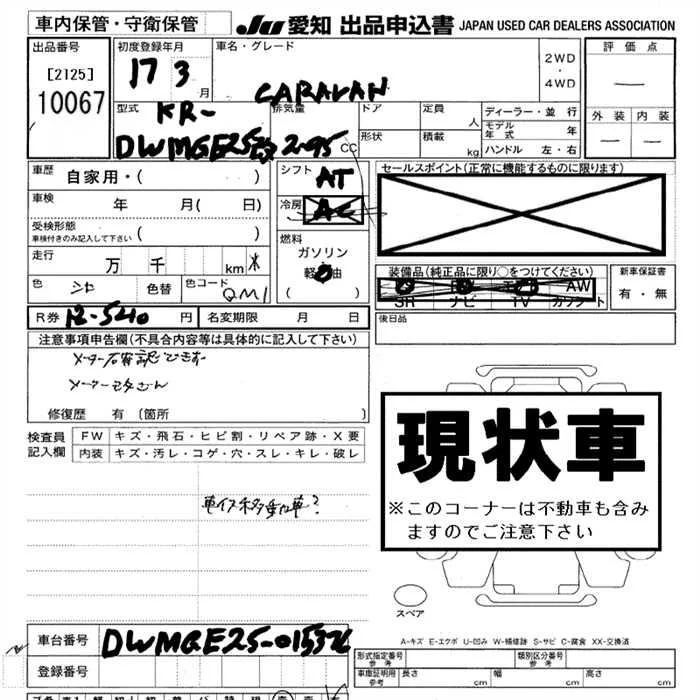 車内保管・守衛保管
JU 愛知 出品申込書 JAPAN USED CAR DEALERS ASSOCIATION
出品番号
[2125]
10067
初度登録年月
17 3 月
車名・グレード
CARAVAN
2WD
・
4WD
評価点
外装 内装
型式
KR-
DWMGE25改
排気量
2.95 CC
ドア
形状
定員 人
積載 kg
ディーラー・並行
モデル年式 年
ハンドル 左・右
車歴 自家用・( )
車検 年 月( 日)
受検形態
車検付きのみ記入して下さい ( )
走行 万 千 km
色 シロ 色替 色コード QM1
シフト AT
冷房 AC
燃料
ガソリン
軽油
( )
セールスポイント(正常に機能するものに限ります)
装備品(純正品に限り○をつけてください)
AW
SR ナビ TV カワシート
新車保証書
有・無
R券 12-540 円 名変期限 月 日
後日品
注意事項申告欄(不具合内容等は具体的に記入して下さい)
修復歴 有 〔箇所 〕
検査員
記入欄
FW キズ・飛石・ヒビ割・リペア跡・X要
内装 キズ・汚レ・コゲ・穴・スレ・キレ・破レ
車イス移動車?
現状車
※このコーナーは不動車も含み
ますのでご注意下さい
スペア
A-キズ E-エクボ U-凹み W-補修跡 S-サビ C-腐食 XX-交換済
車台番号 DWMGE25-015376
登録番号
形式指定番号
参考
類別区分番号
参考
車庫証明用
参考
長さ cm 幅 cm 高さ cm